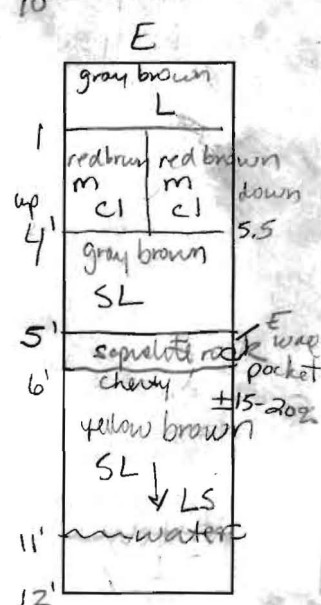 10
E
gray brown
L
1
redbrun red brown
m m
up cl cl down
4' 5.5
gray brown
SL
5' E wap
saprolite rock pocket
6' cherty
±15-20%
yellow brown
SL
↓ LS
11' water
12'